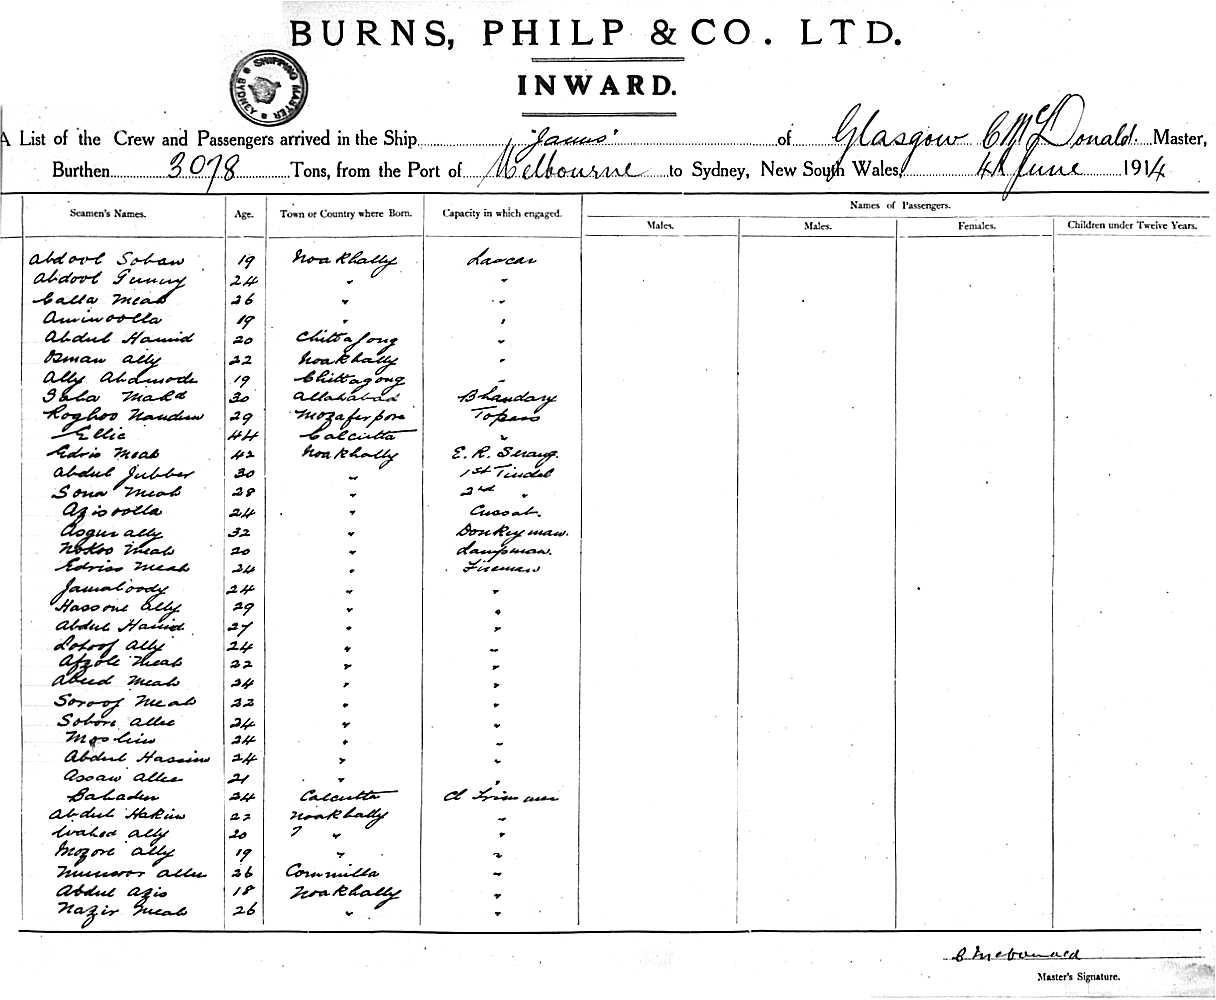 BURNS, PHILP & CO. LTD.
INWARD.
SHIPPING MASTER SYDNEY
A List of the Crew and Passengers arrived in the Ship "Janus" of Glasgow C McDonald. Master,
Burthen 3078 Tons, from the Port of Melbourne to Sydney, New South Wales, 4th June 1914
Seamen's Names. Age. Town or Country where Born. Capacity in which engaged. Names of Passengers.
Males. Males. Females. Children under Twelve Years.
Abdool Soban 19 Noakhally Lascar
Abdool Gunny 24 " "
Calla Meah 26 " "
Aminoolla 19 " "
Abdul Hamid 20 Chittagong "
Osman Ally 22 Noakhally "
Ally Ahamode 19 Chittagong "
Mahd 30 Allahabad Bhandary
Roghoo Nandan 29 Mozaferpore Topass
Ellic 44 Calcutta "
Edris Meah 42 Noakhally E. R. Serang.
Abdul Jubber 30 " 1st Tindel
Sona Meah 28 " 2nd "
Azisoolla 24 " Cussab.
Asgur Ally 32 " Donkeyman.
Nokoo Meah 20 " Lampman.
Edriss Meah 24 " Fireman
Jamaloody 24 " "
Hassone Ally 29 " "
Abdul Hamid 27 " "
Lotoof Ally 24 " "
Afzole Meah 22 " "
Abed Meah 24 " "
Soroof Meah 22 " "
Sobore Allee 24 " "
Moslim 24 " "
Abdul Hassim 24 " "
Assan Allee 21 " "
Bahadur 24 Calcutta Cl Trimmer
Abdul Hakim 22 Noakhally "
Wahed Ally 20 " "
Mozore Ally 19 " "
Munsoor Allee 26 Commilla "
Abdul Azis 18 Noakhally "
Nazir Meah 26 " "
C McDonald
Master's Signature.